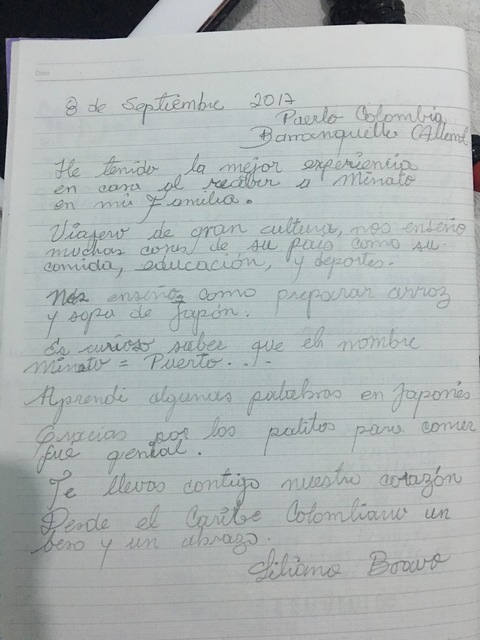 8 de Septiembre 2017
Puerto Colombia
Barranquilla (Atland
He tenido la mejor experiencia
en casa al recibir a Minato
en mi Familia.
Viajero de gran cultura, nos enseño
muchas cosas de su pais como su
comida, educación, y deportes.
Nos enseño como preparar arroz
y sopa de Japón.
Es curioso saber que el nombre
Minato = Puerto...-
Aprendi algunas palabras en Japonés
Gracias por los palitos para comer
fue genial.
Te llevas contigo nuestro corazón
Desde el Caribe Colombiano un
beso y un abrazo.
Liliana Bravo